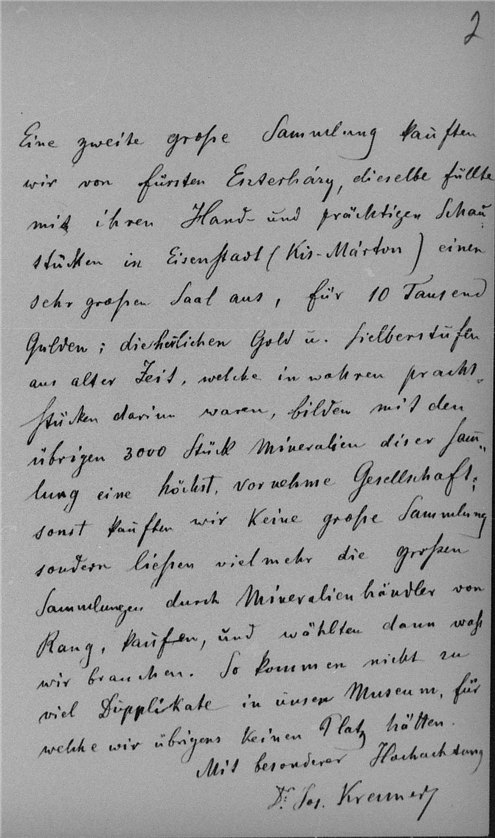 2
Eine zweite große Sammlung kauften
wir von Fürsten Eszterházy, dieselbe füllte
mit ihren Hand- und prächtigen Schau-
stücken in Eisenstadt (Kis-Márton) einen
sehr grossen Saal aus, für 10 Tausend
Gulden; die herlichen Gold u. Sielberstufen
aus alter Zeit, welche in wahren pracht-
stücken darinn waren, bilden mit den
übrigen 3000 Stück Mineralien diser Sam-
lung eine höchst, vornehme Gesellschaft;
sonst kauften wir Keine große Sammlung
sondern ließen vielmehr die großen
Sammlungen durch Mineralienhändler von
Rang, kaufen, und wählten dann was
wir brauchen. So kommen nicht zu
viel Dupplikate in unser Museum, für
welche wir übrigens keinen Platz hätten.
Mit besonderer Hochachtung
Dr. Jos. Krenner